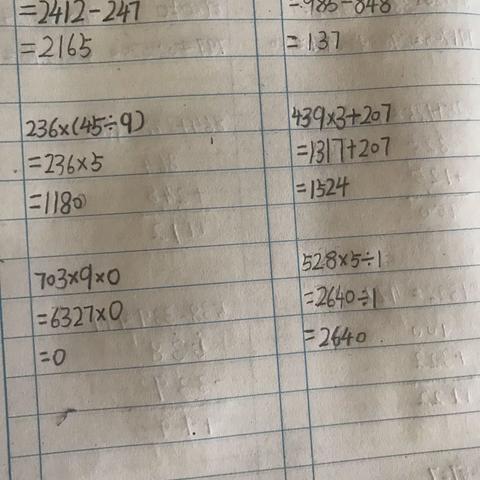 =2412-247
=2165
=985-848
=137
236×(45÷9)
=236×5
=1180
439×3+207
=1317+207
=1524
703×9×0
=6327×0
=0
528×5÷1
=2640÷1
=2640